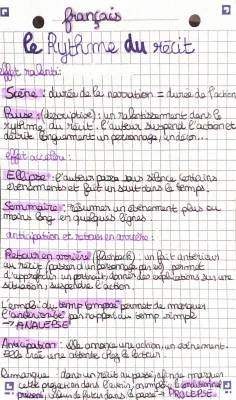 français
le Rythme du récit
effet ralenti:
Scène : durée de la narration = durée de l'action
Pause : (descriptive) : un ralentissement dans le
rythme du récit. l'auteur suspend l'action et
décrit longuement un personnage, un décor...
effet accéléré :
Ellipse : l'auteur passe sous silence certains
évènements et fait un saut dans le temps.
Sommaire : résumer un évènement plus ou
moins long en quelques lignes.
anticipation et retours en arrière :
Retour en arrière (flashback) : un fait antérieur
au récit (passé d'un personnage par ex) permet
d'approfondir un portrait, donner des explications sur une
situation, suspendre l'action
L'emploi du temps composé permet de marquer
l'antériorité par rapport au temps simple
→ ANALEPSE
Anticipation : elle annonce une action, un évènement.
Elle crée une attente chez le lecteur.
Remarque : dans un récit au passé, afin de marquer
cette projection dans l'avenir, on emploie le conditionnel
présent, valeur de futur dans le passé → PROLEPSE